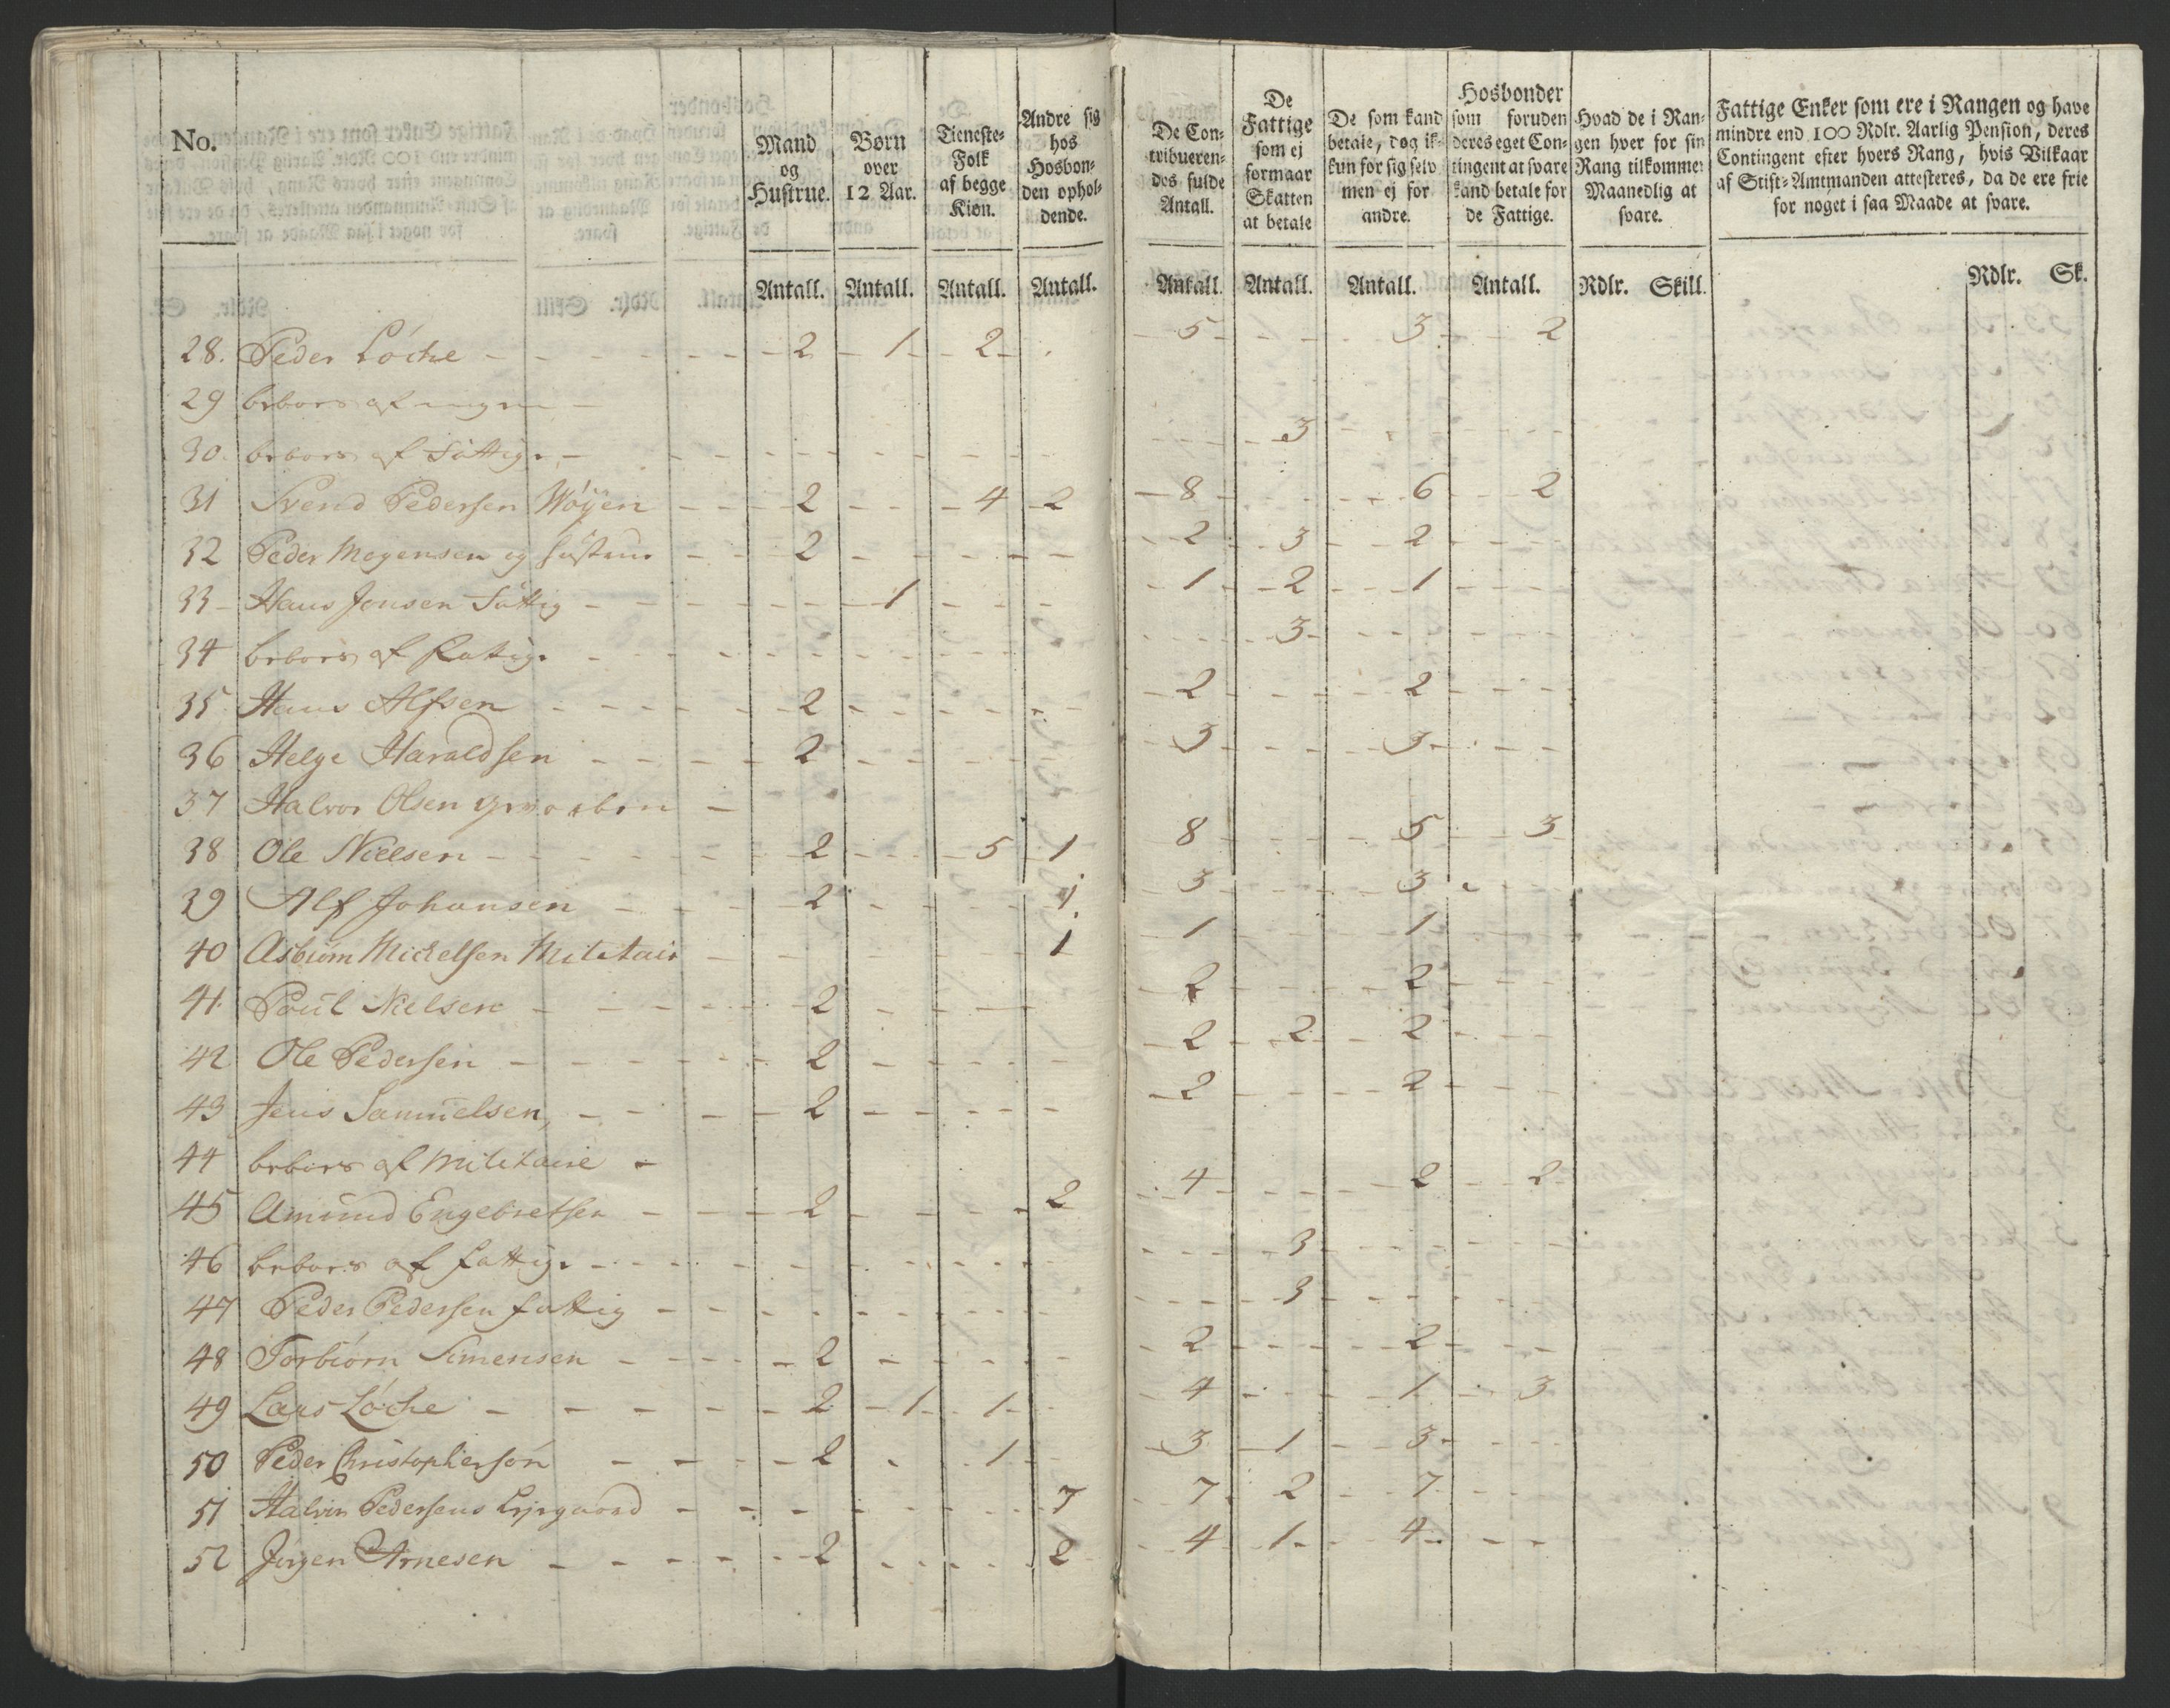 No.
Mand og Hustrue.
Børn over 12 Aar.
Tieneste-Folk af begge Kiøn.
Andre sig hos Hosbonden opholdende.
De Contribuerendes fulde Antall.
De Fattige som ej formaar Skatten at betale
De som kand betale, dog ikkun for sig selv men ej for andre.
Hosbonder som foruden deres eget Contingent at svare kand betale for de Fattige.
Hvad de i Rangen hver for sin Rang tilkommer Maanedlig at svare.
Fattige Enker som ere i Rangen og have mindre end 100 Rdlr. Aarlig Pension, deres Contingent efter hvers Rang, hvis Vilkaar af Stift-Amtmanden attesteres, da de ere frie for noget i saa Maade at svare.
Antall. Antall. Antall. Antall. Antall. Antall. Antall. Antall. Rdlr. Skill. Rdlr. Sk.
28. Peder Löche 2 1 2 5 3 2
29 beboes af ingen
30. beboes af fattige 3
31 Svend Pedersen Wøÿen 2 4 2 8 6 2
32 Peder Mogensen og hustrue 2 2 3 2
33 Hans Jensen fattig 1 1 2 1
34 beboes af fattige 3
35 Hans Alfsen 2 2 2
36 Helge Haraldsen 2 3 3
37 Halvor Olsen
38 Ole Nielsen 2 5 1 8 5 3
39 Alf Johansen 2 1 3 3
40 Asbiørn Michelsen Militair 1 1 1
41. Poul Nielsen 2 2 2
42 Ole Pedersen 2 2 2 2
43 Jens Samuelsen 2 2 2
44 beboes af Militaire
45 Amund Engebretsen 2 2 4 2 2
46 beboes af fattige 3
47 Peder Pedersen fattig 3
48 Torbiørn Simensen 2 2 2
49 Lars Löche 2 1 1 4 1 3
50 Peder Christophersøn 2 1 3 1 3
51 Halvor Pedersens 7 7 2 7
52 Jørgen Arnesen 2 2 4 1 4